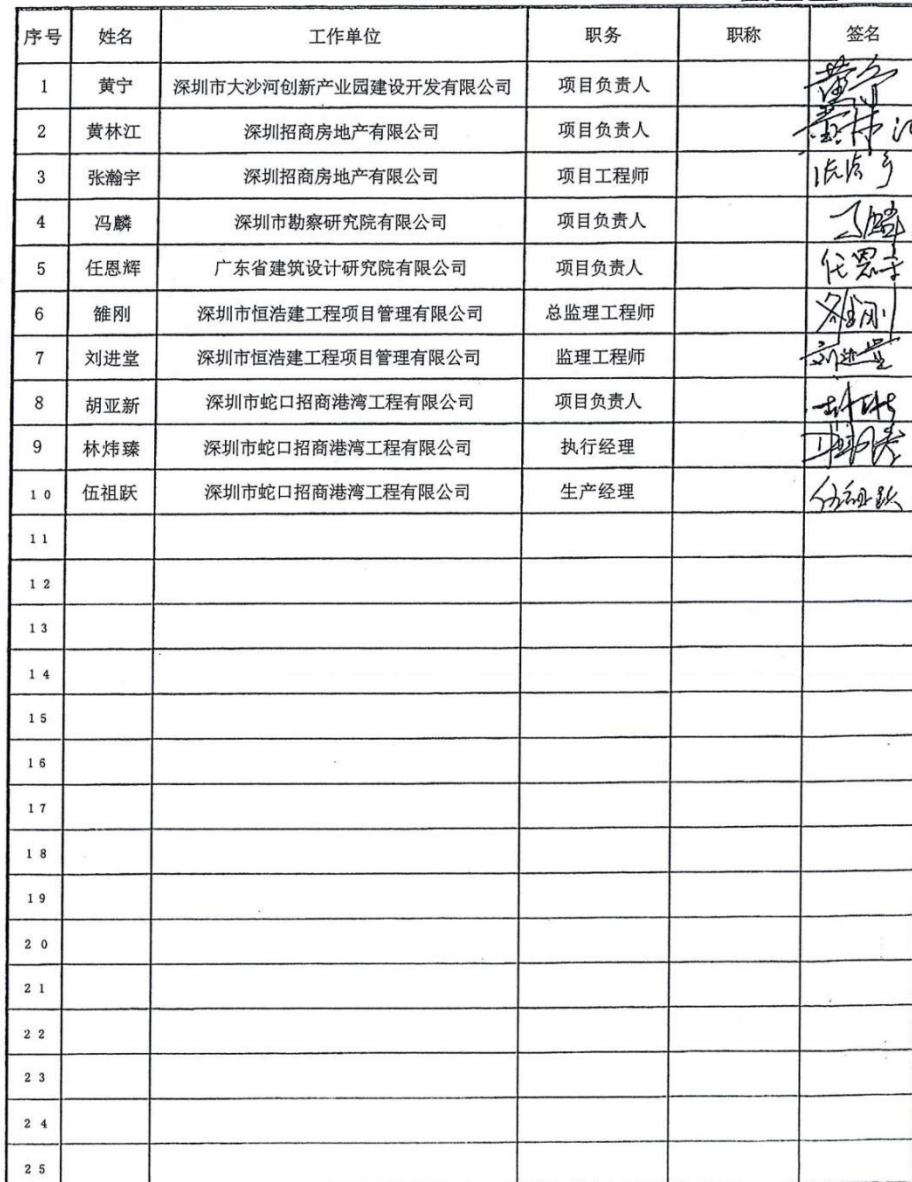 序号 姓名 工作单位 职务 职称 签名
1 黄宁 深圳市大沙河创新产业园建设开发有限公司 项目负责人 黄宁
2 黄林江 深圳招商房地产有限公司 项目负责人 黄林江
3 张瀚宇 深圳招商房地产有限公司 项目工程师
4 冯麟 深圳市勘察研究院有限公司 项目负责人 冯麟
5 任恩辉 广东省建筑设计研究院有限公司 项目负责人 任恩辉
6 雒刚 深圳市恒浩建工程项目管理有限公司 总监理工程师 雒刚
7 刘进堂 深圳市恒浩建工程项目管理有限公司 监理工程师 刘进堂
8 胡亚新 深圳市蛇口招商港湾工程有限公司 项目负责人
9 林炜臻 深圳市蛇口招商港湾工程有限公司 执行经理
10 伍祖跃 深圳市蛇口招商港湾工程有限公司 生产经理 伍祖跃
11
12
13
14
15
16
17
18
19
20
21
22
23
24
25